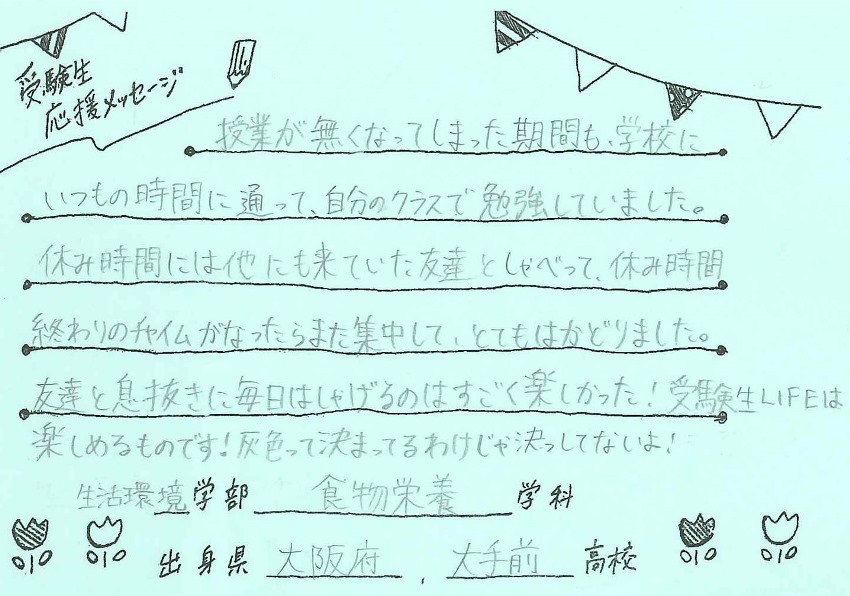 受験生
応援メッセージ
授業が無くなってしまった期間も、学校に
いつもの時間に通って、自分のクラスで勉強していました。
休み時間には他にも来ていた友達としゃべって、休み時間
終わりのチャイムがなったらまた集中して、とてもはかどりました。
友達と息抜きに毎日はしゃげるのはすごく楽しかった！受験生LIFEは
楽しめるものです！灰色って決まってるわけじゃ決っしてないよ！
生活環境学部 食物栄養 学科
出身県 大阪府 . 大手前 高校